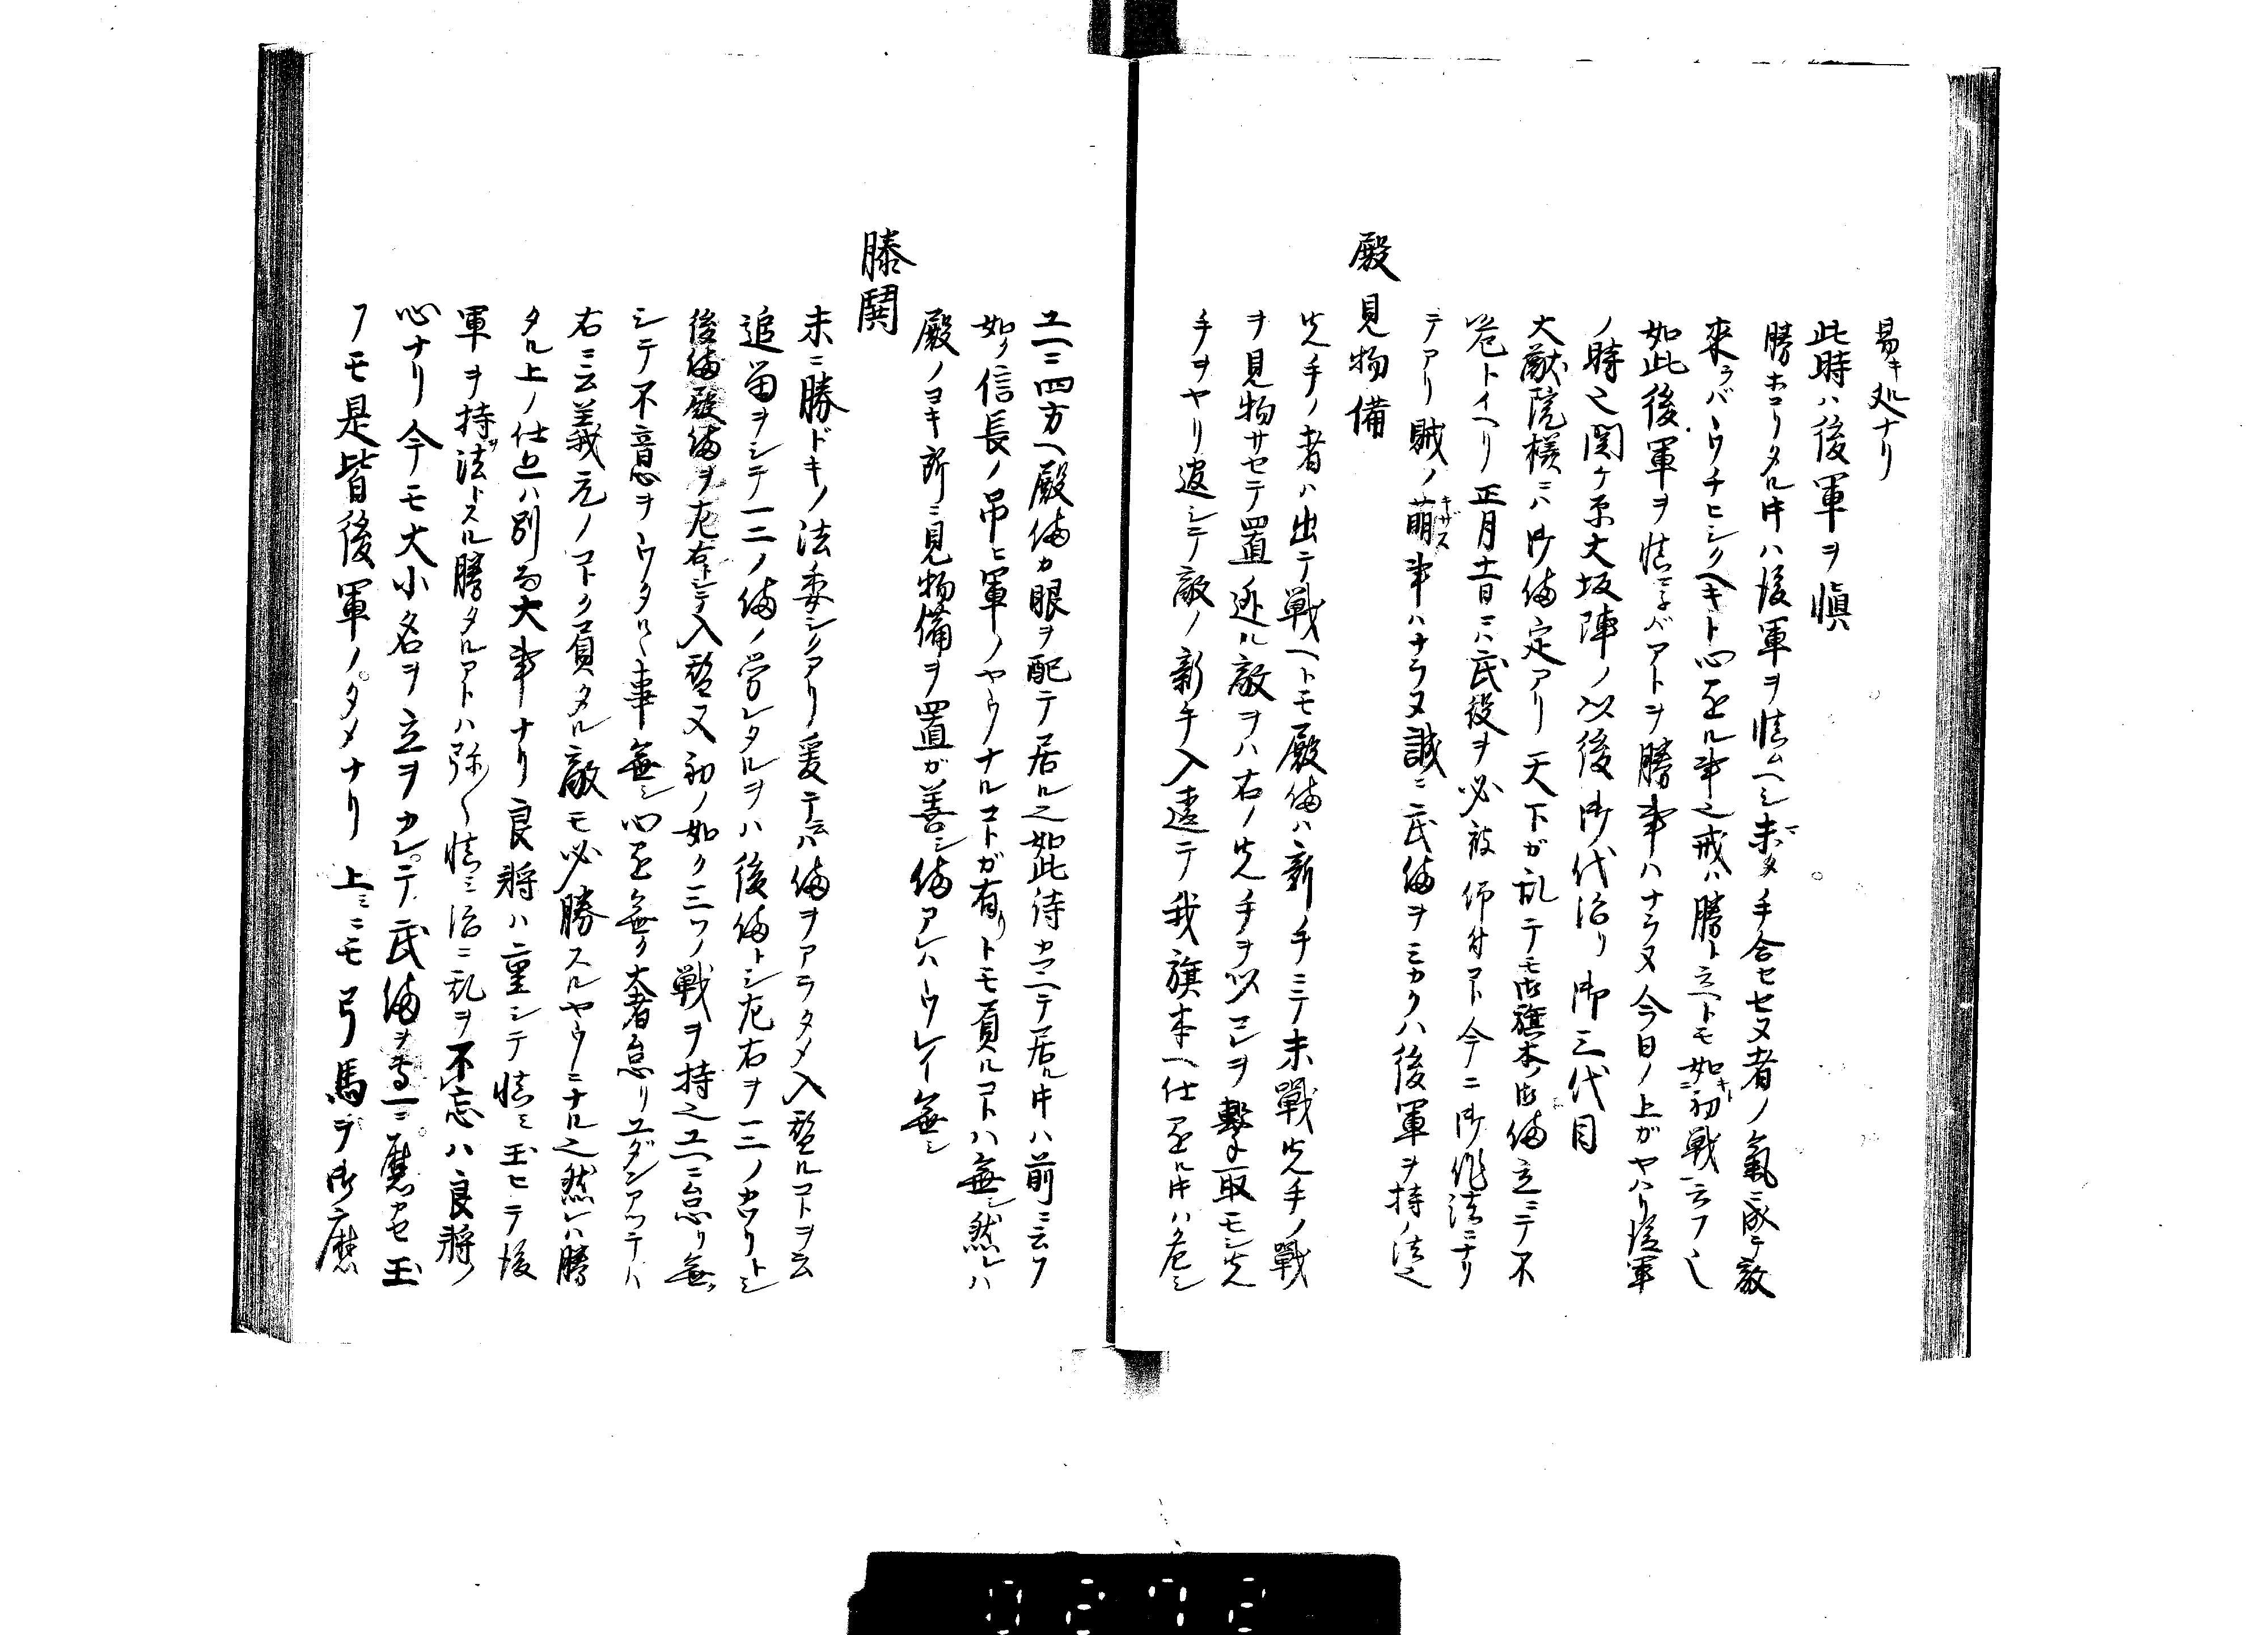 易キ処ナリ
此時ハ後軍ヲ慎
勝ホコリタル時ハ後軍ヲ慎ムヘシ未タ手合セセヌ者ノ氣ニ成テ敵
來ラバウチヒシクヘキト心至ル事之戒ハ勝ト立ヘトモ如初戦ニ云フ之
如此後軍ヲ慎ミネバアトヲ勝事ハナラヌ今日ノ上ガヤハリ後軍
ノ時之関ケ原大坂陣ノ以後御代治リ御三代目
大猷院様ニハ御備定アリ天下ガ乱テモ御旗本ノ御備立ニテ不
危トイヘリ正月十一日ニハ武役ヲ必被仰付アト今ニ御作法ニナリ
テアリ賊ノ萌キザス事ハナラヌ誠ニ武備ヲミカクハ後軍ヲ持ノ法之
殿見物備
先手ノ者ハ出テ戦ヘトモ殿備ハ新ノ手ニテ未戰先手ノ戰
ヲ見物サセテ置逃ル敵ヲハ右ノ先手ヲ以コレヲ撃取モシ先
手ヲヤリ返シテ敵ノ新手入遠テ我旗本ヘ仕至ル時ハ危シ
ユヘニ四方ヘ殿備カ眼ヲ配テ居ル之如此待カマヘテ居ル時ハ前ニ云フ
如ク信長ノ吊ヒ軍ノヤウナルコトガ有リトモ負ルコトハ無シ然レハ
殿ノヨキ所ニ見物備ヲ置ガ善シ備アレハウレイ無シ
勝鬨
末ニ勝ドキノ法委シクアリ爰テ云ハ備ヲアラタメ入替ルコトヲ云
追留ヲシテ一二ノ備ノ労レタルヲハ後備トシ左右ヲ一二ノカワリトシ
後備殿備ヲ左右トシテ入替又初ノ如ク三ツノ戦ヲ持之ユヘニ怠リ無
シテ不意ヲウタルヽ事無シ心至無ク大者怠リユダンアツテハ
右ニ云義元ノコトク負タル敵モ必勝スルヤウニナル之然レハ勝
タル上ノ仕置ハ別而大事ナリ良将ハ重シテ慎ミ玉ヒテ後
軍ヲ持法トスル勝タルアトハ弥〱慎ミ治ニ乱ヲ不忘ハ良将ノ
心ナリ今モ大小名ヲ立ヲカレテ武備ヲ専一ニ麿カセ玉
フモ是皆後軍ノタメナリ上ミニモ弓馬ヲ御麿